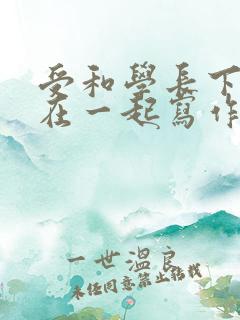 受和學長下
在一起寫作
一世溫良
未经同意禁止转载